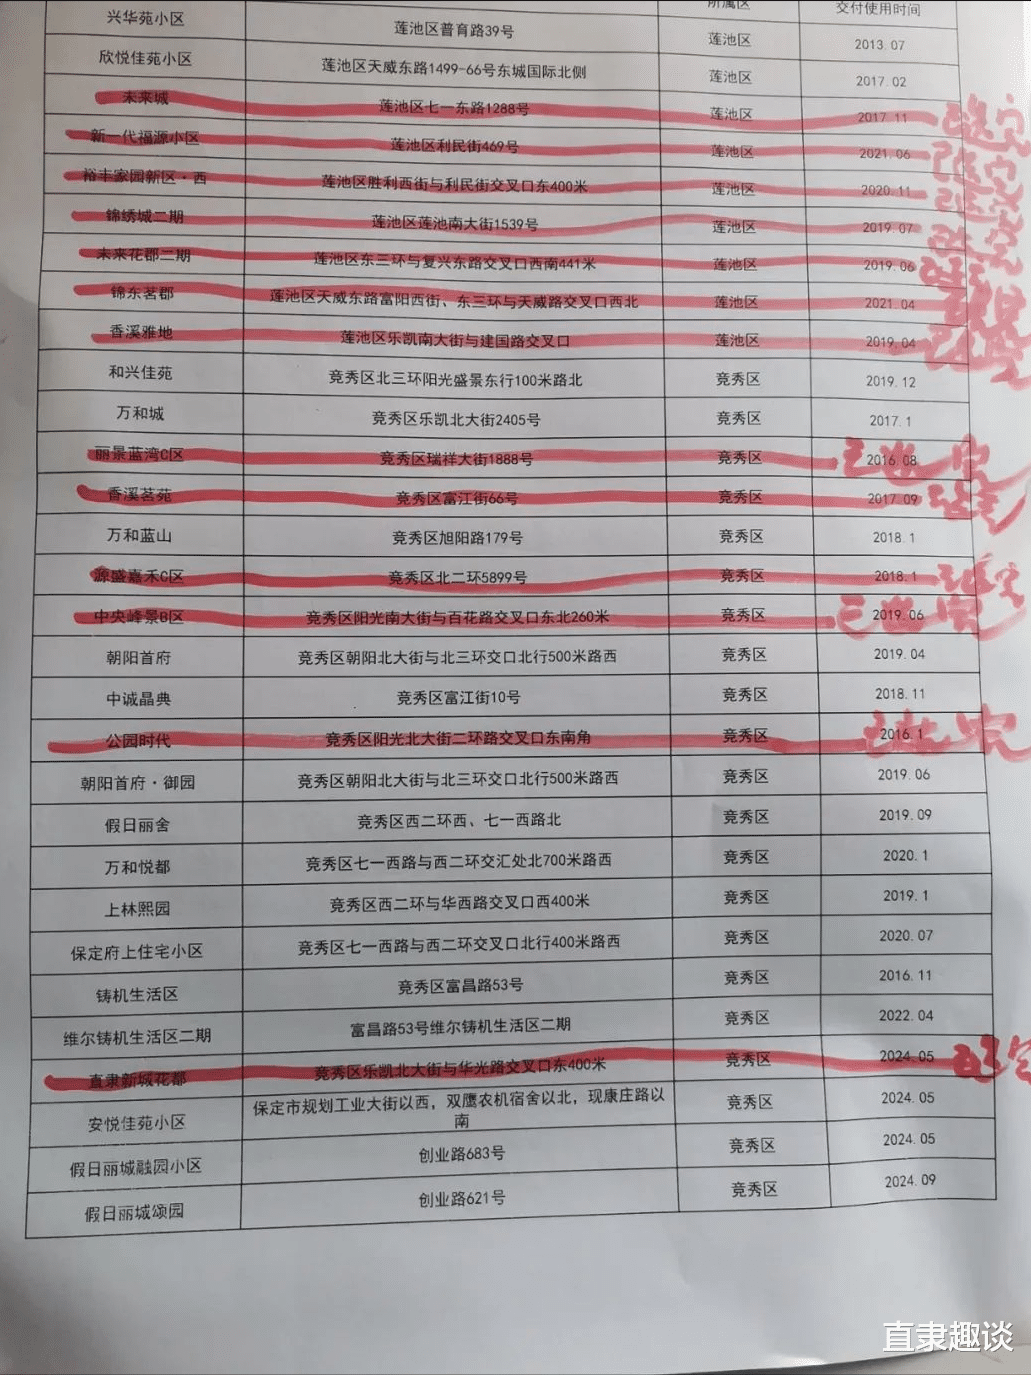 所属区 交付使用时间
兴华苑小区 莲池区普育路39号 莲池区 2013.07
欣悦佳苑小区 莲池区天威东路1499-66号东城国际北侧 莲池区 2017.02
未来城 莲池区七一东路1288号 莲池区 2017.11
新一代福源小区 莲池区利民街469号 莲池区 2021.06
裕丰家园新区·西 莲池区胜利西街与利民街交叉口东400米 莲池区 2020.11
锦绣城二期 莲池区莲池南大街1539号 莲池区 2019.07
未来花郡二期 莲池区东三环与复兴东路交叉口西南441米 莲池区 2019.06
锦东茗郡 莲池区天威东路富阳西街、东三环与天威路交叉口西北 莲池区 2021.04
香溪雅地 莲池区乐凯南大街与建国路交叉口 莲池区 2019.04
和兴佳苑 竞秀区北三环阳光盛景东行100米路北 竞秀区 2019.12
万和城 竞秀区乐凯北大街2405号 竞秀区 2017.1
丽景蓝湾C区 竞秀区瑞祥大街1888号 竞秀区 2016.08
香溪茗苑 竞秀区富江街66号 竞秀区 2017.09
万和蓝山 竞秀区旭阳路179号 竞秀区 2018.1
源盛嘉禾C区 竞秀区北二环5899号 竞秀区 2018.1
中央峰景B区 竞秀区阳光南大街与百花路交叉口东北260米 竞秀区 2019.06
朝阳首府 竞秀区朝阳北大街与北三环交口北行500米路西 竞秀区 2019.04
中诚晶典 竞秀区富江街10号 竞秀区 2018.11
公园时代 竞秀区阳光北大街二环路交叉口东南角 竞秀区 2016.1
朝阳首府·御园 竞秀区朝阳北大街与北三环交口北行500米路西 竞秀区 2019.06
假日丽舍 竞秀区西二环西、七一西路北 竞秀区 2019.09
万和悦都 竞秀区七一西路与西二环交汇处北700米路西 竞秀区 2020.1
上林熙园 竞秀区西二环与华西路交叉口西400米 竞秀区 2019.1
保定府上住宅小区 竞秀区七一西路与西二环交叉口北行400米路西 竞秀区 2020.07
铸机生活区 竞秀区富昌路53号 竞秀区 2016.11
维尔铸机生活区二期 富昌路53号维尔铸机生活区二期 竞秀区 2022.04
直隶新城花都 竞秀区乐凯北大街与华光路交叉口东400米 竞秀区 2024.05
安悦佳苑小区 保定市规划工业大街以西，双鹰农机宿舍以北，现康庄路以 竞秀区 2024.05
南
假日丽城融园小区 创业路683号 竞秀区 2024.05
假日丽城颂园 创业路621号 竞秀区 2024.09
直隶趣谈